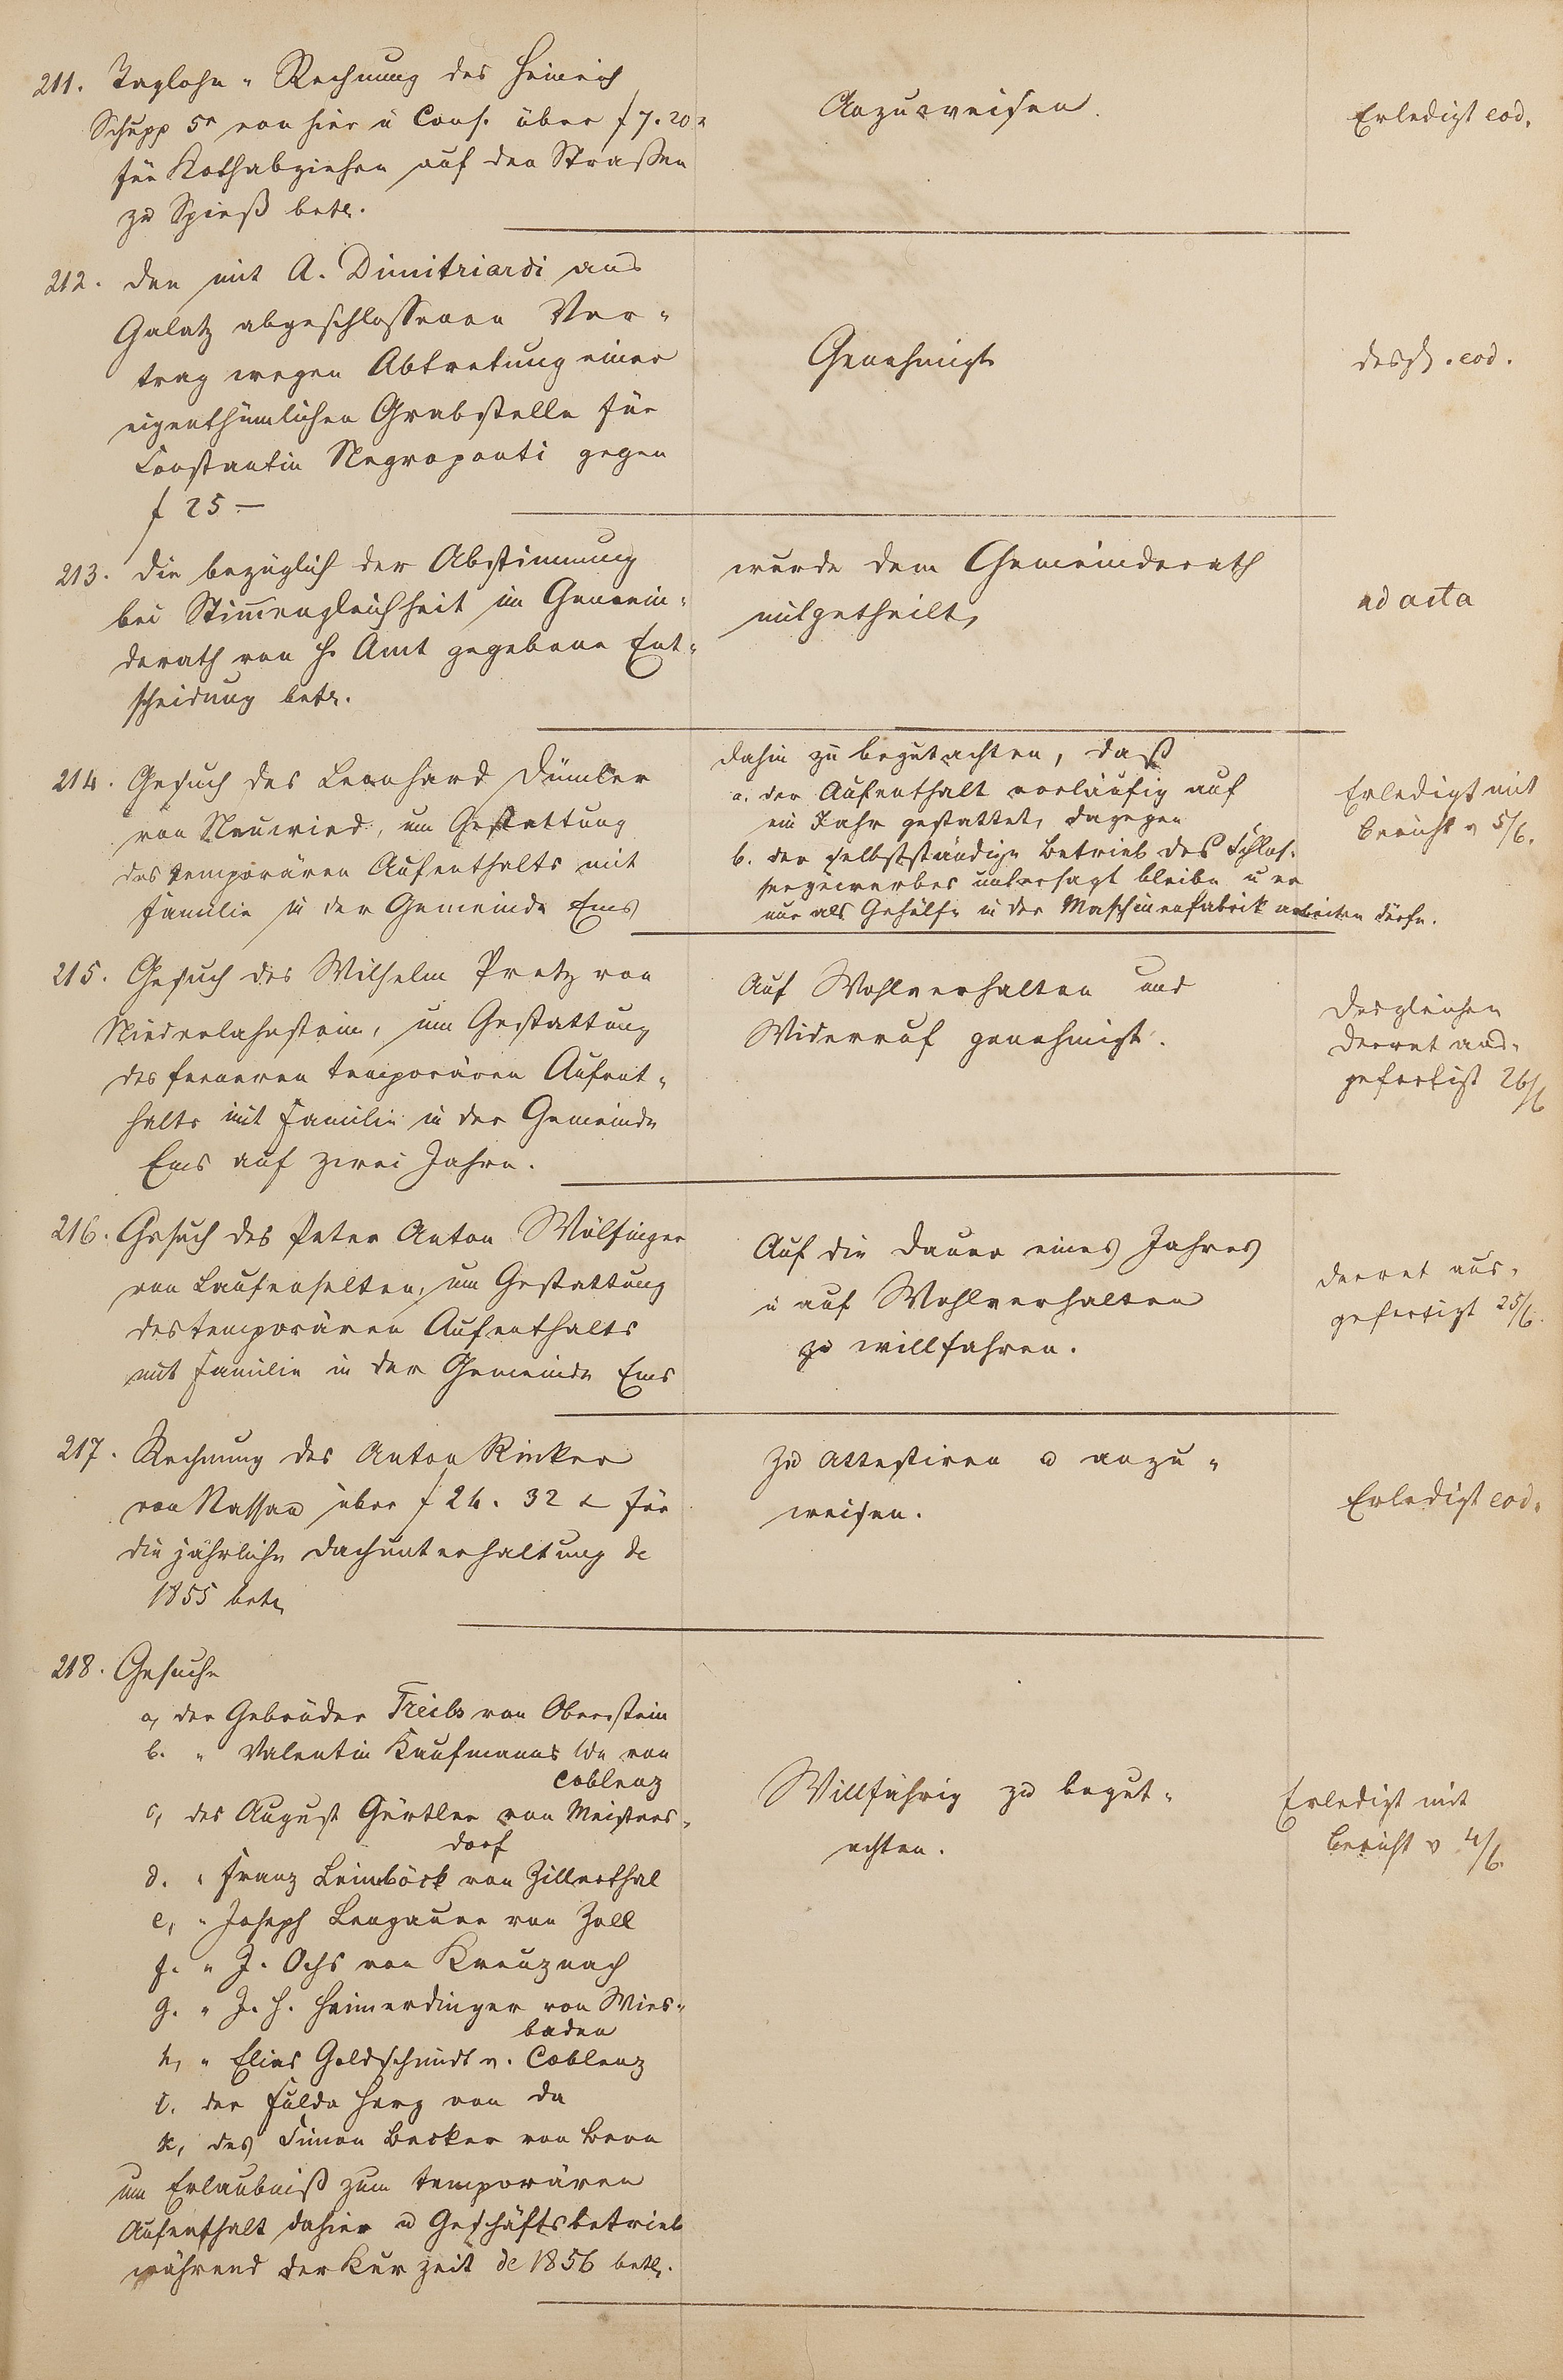 211. Taglohn-Rechnung des Heinrich
Schupp 5r von hier u Cons. über f 7. 20 x
für Kothabziehen auf den Straßen
zu Spieß betr.
Anzuweisen.
Erledigt eod.
212. Den mit A. Dimitriardi aus
Galatz abgeschlossenen Ver-
trag wegen Abtretung einer
eigenthümlichen Grabstelle für
Constantin Negroponti gegen
f 25 —
Genehmigt
desgl. eod.
213. Die bezüglich der Abstimmung
bei Stimengleichheit im Gemein-
derath von H. Amt gegebene Ent-
scheidung betr.
wurde dem Gemeinderath
mitgetheilt,
ad acta
214. Gesuch des Leonhard Dümler
von Neuwied, um Gestattung
des temporären Aufenthalts mit
Familie in der Gemeinde Ems
dahin zu begutachten, daß
a. der Aufenthalt vorläufig auf
ein Jahr gestattet, dagegen
b. der selbstständige Betrieb des Schlos-
sergewerbes untersagt bleibe u er
nur als Gehülfe in der Maschinenfabrik arbeiten dürfe.
Erledigt mit
Bericht v 5/6.
215. Gesuch des Wilhelm Pretz von
Niederlahnstein, um Gestattung
des ferneren temporären Aufent-
halts mit Familie in der Gemeinde
Ems auf zwei Jahre.
Auf Wohlverhalten und
Widerruf genehmigt.
Desgleichen
Decret aus-
gefertigt 26/6
216. Gesuch des Peter Anton Wölfinger
von Laufenselten, um Gestattung
des temporären Aufenthalts
mit Familie in der Gemeinde Ems
Auf die Dauer eines Jahres
u auf Wohlverhalten
zu willfahren.
Decret aus-
gefertigt 25/6.
217. Rechnung des Anton Rinker
von Nassau über f 26. 32 x für
die jährliche Dachunterhaltung de
1855 betr.
Zu attestiren u anzu-
weisen.
Erledigt eod.
218. Gesuche
a, der Gebrüder Treibs von Oberstein
b. " Valentin Kaufmanns We von
Coblenz
c, des August Gürtler von Meisters-
dorf
d. " Franz Leimböck von Zillerthal
e, " Joseph Lengauer von Zell
f. " J. Ochs von Kreuznach
g. " J. H. Heimerdinger von Wies-
baden
h, " Elias Goldschmidt v. Coblenz
i. der Fulda Herz von da
k, des Simon Becker von Bern
um Erlaubniß zum temporären
Aufenthalt dahier u Geschäftsbetrieb
während der Kurzeit de 1856 betr.
Willfährig zu begut-
achten.
Erledigt mit
Bericht v 4/6.